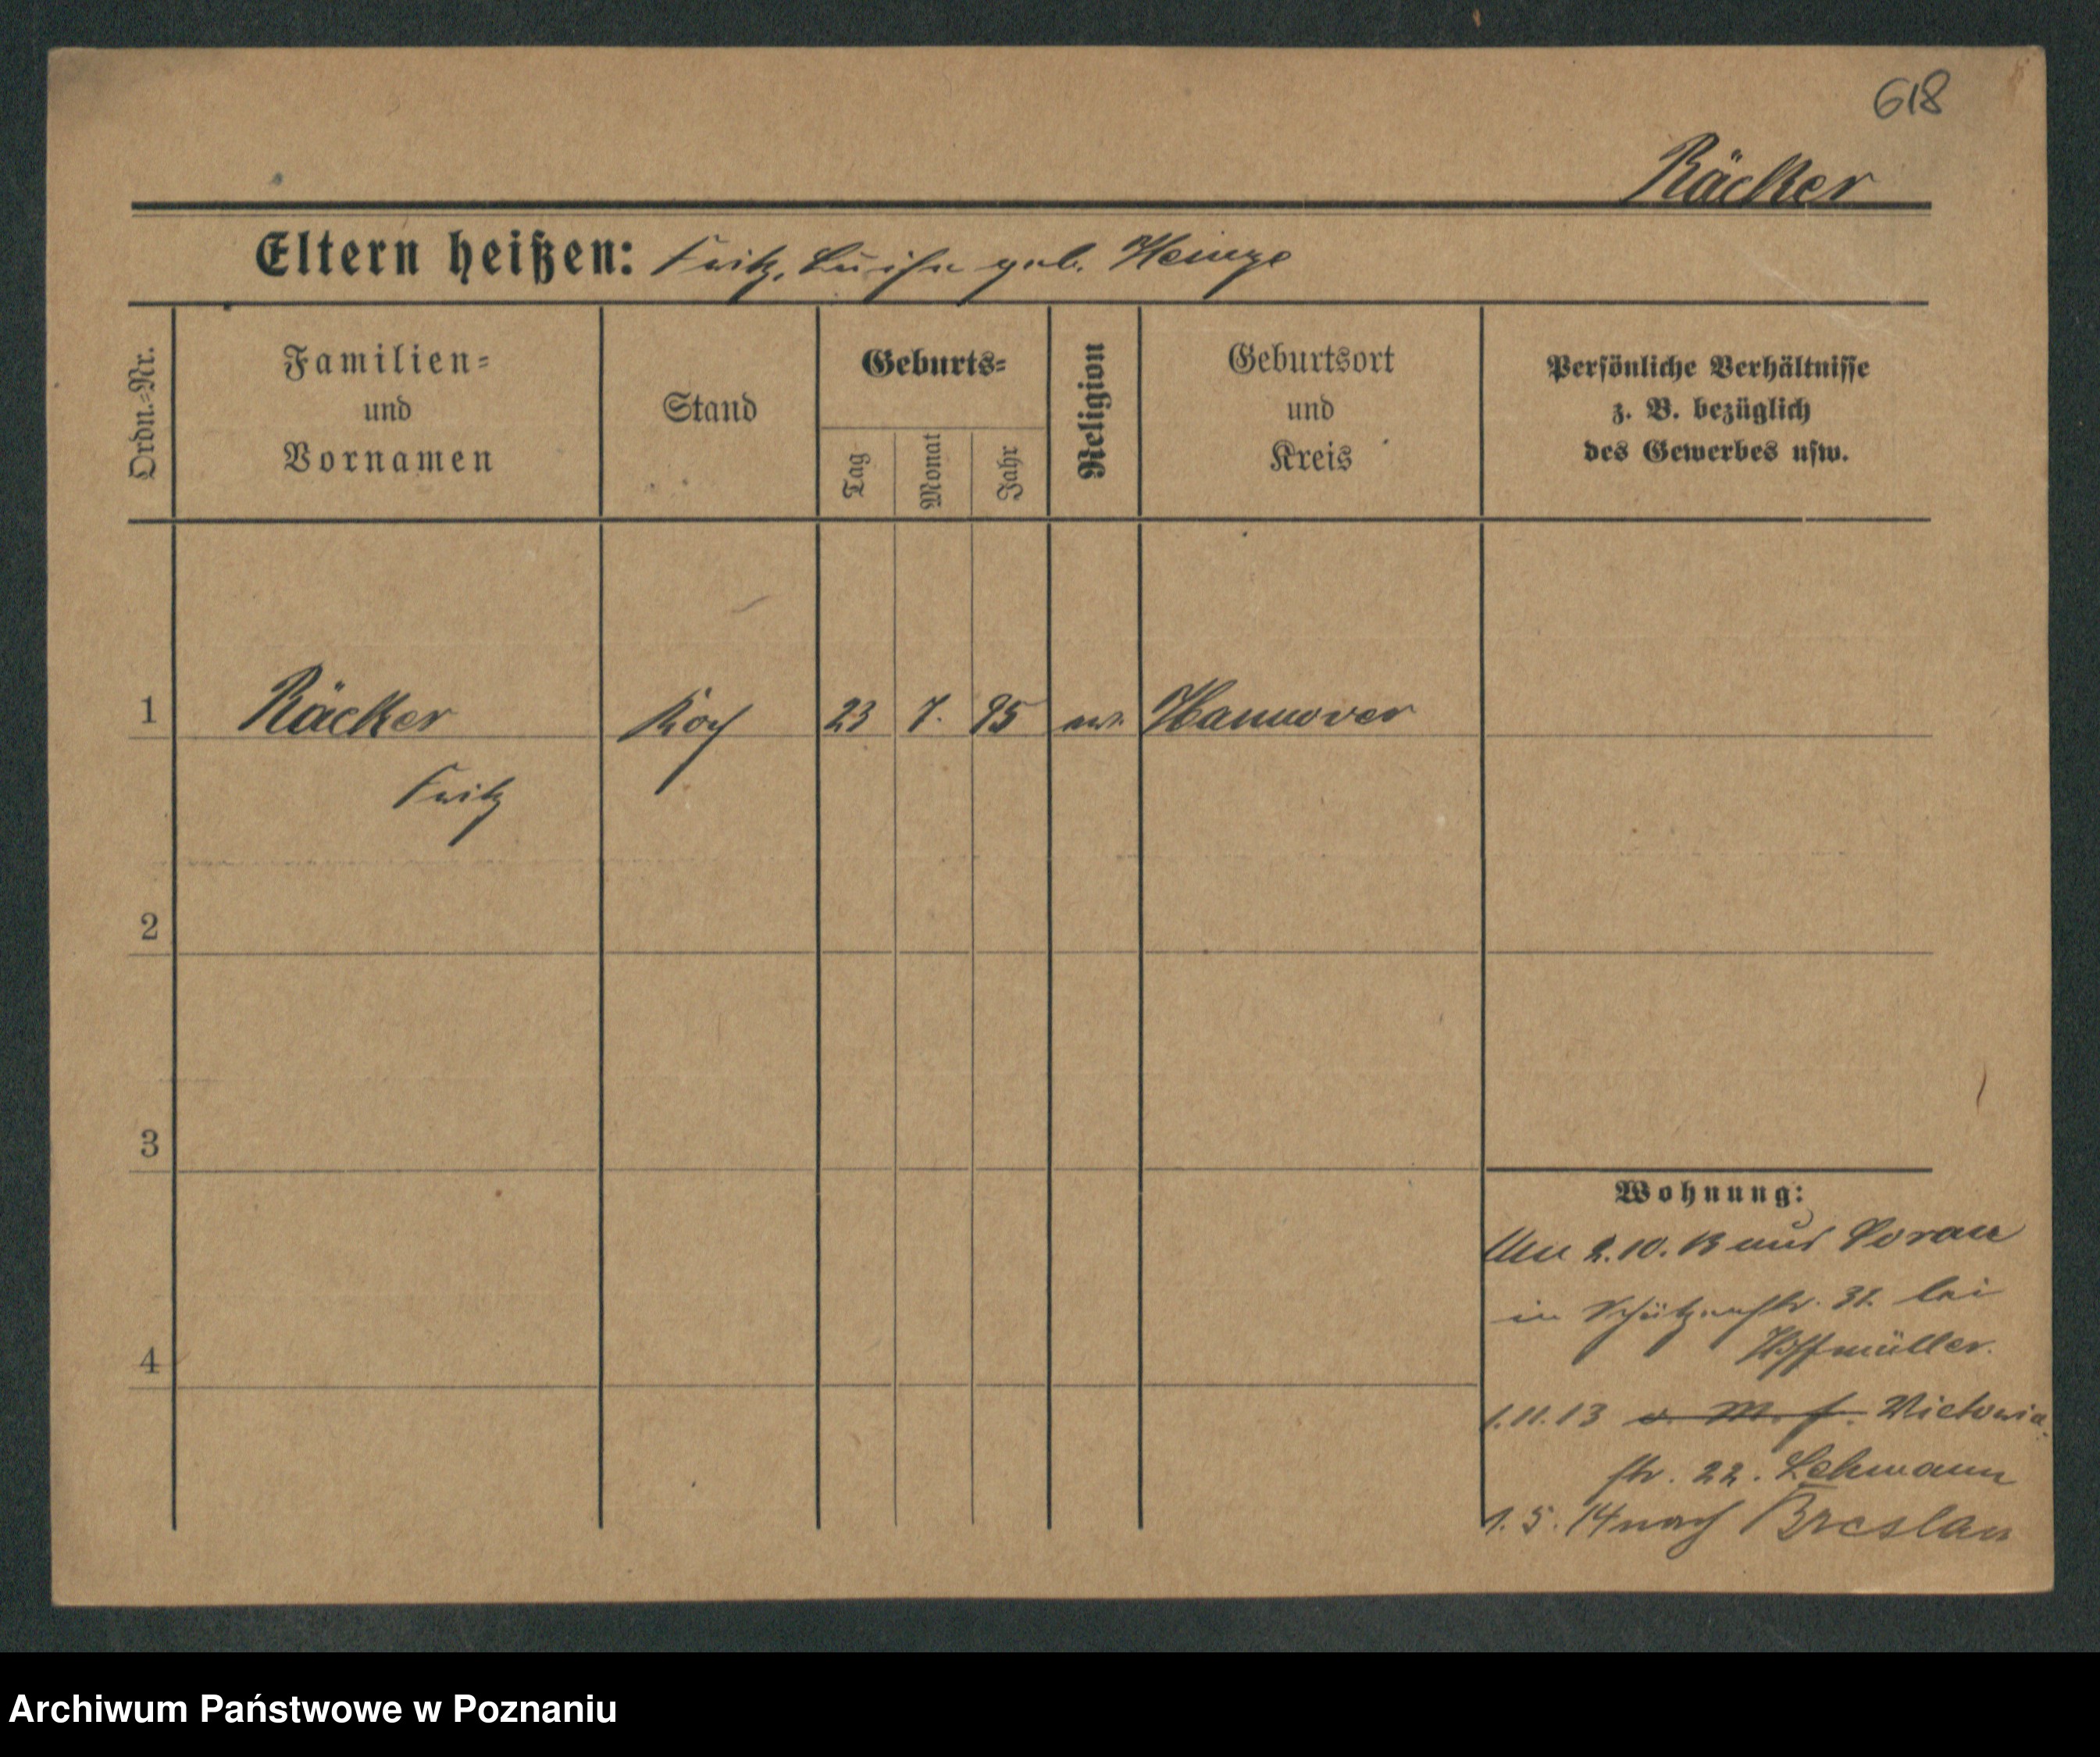 618
Räcker
Eltern heißen: Fritz, Luise geb. Heinze
Ordn.-Nr.
Familien-
und
Vornamen
Stand
Geburts-
Tag
Monat
Jahr
Religion
Geburtsort
und
Kreis
Persönliche Verhältnisse
z. B. bezüglich
des Gewerbes usw.
1 Räcker Koch 23 7. 95 ev. Hannover
Fritz
2
3
4
Wohnung:
2.10.13 aus Sorau
in Schützenstr. 31. bei
Hoffmüller.
1.11.13 v. M. f. Victoria-
str. 22. Lehmann
1.5.14 nach Breslau
Archiwum Państwowe w Poznaniu